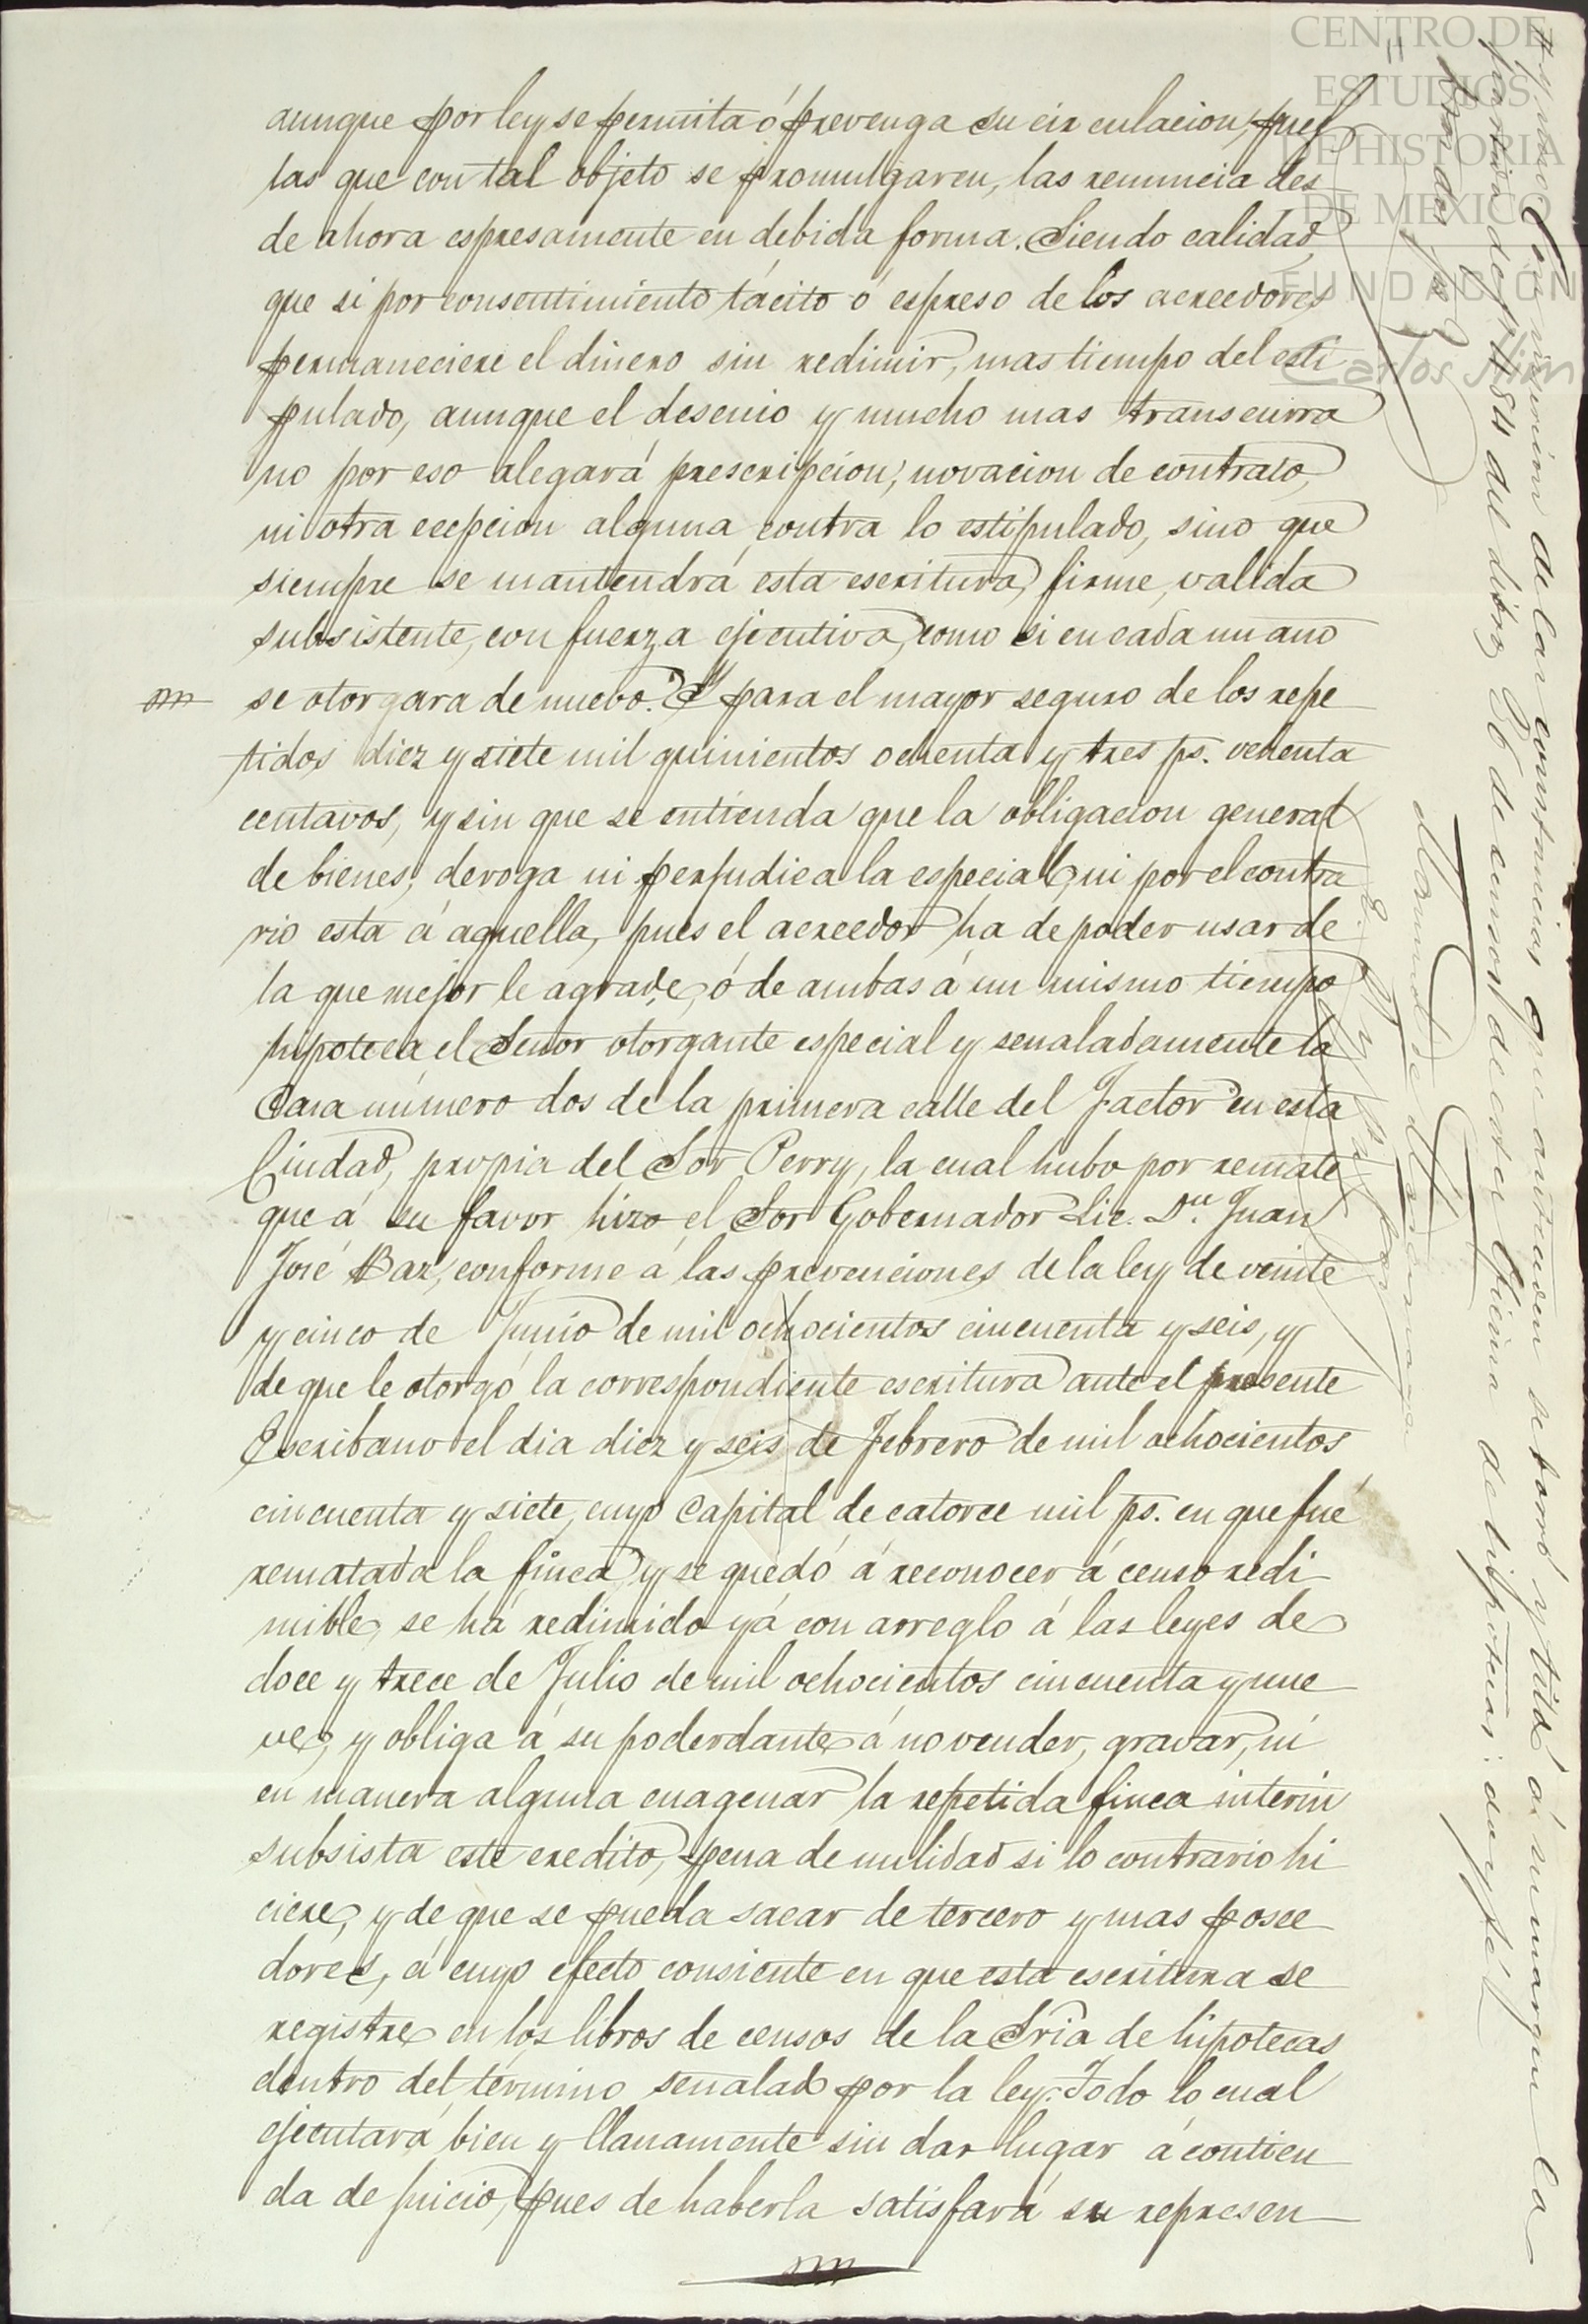 aunque por ley se permita ó prevenga su circulacion, pues
las que con tal objeto se promulgaren, las renuncia des
de ahora espresamente en debida forma. Siendo calidad,
que si por consentimiento tácito ó espreso de los acreedores
permaneciere el dinero sin redimir, mas tiempo del esti
pulado, aunque el desenio y mucho mas transcurra
no por eso alegará prescripcion, novacion de contrato,
ni otra ecepcion alguna contra lo estipulado, sino que
siempre se mantendrá esta escritura, firme, valida
subsistente, con fuerza ejecutiva, como si en cada un año
se otorgara de nuevo. Y para el mayor seguro de los repe
tidos diez y siete mil quinientos ochenta y tres ps.
centavos, y sin que se entienda que la obligacion general
de bienes, deroga ni perjudica la especial, ni por el contra
rio esta á aquella, pues el acreedor ha de poder usar de
la que mejor le agrade, ó de ambas á un mismo tiempo
hipoteca el Señor otorgante especial y señaladamente la
Casa número dos de la primera calle del Factor en esta
Ciudad, propia del Sor Perry, la cual hubo por remate
que á su favor hizo el Sor Gobernador Lic. Dn. Juan
José Baz, conforme á las prevenciones de la ley de veinte
y cinco de Junio de mil ochocientos cincuenta y seis, y
de que le otorgó la correspondiente escritura ante el presente
Escribano el dia diez y seis de Febrero de mil ochocientos
cincuenta y siete, cuyo Capital de catorce mil ps. en que fué
rematada la finca y se quedó á reconocer á censo redi
mible, se há redimido yá con arreglo á las leyes de
doce y trece de Julio de mil ochocientos cincuenta y nue
ve, y obliga á su poderdante á no vender, gravar, ni
en manera alguna enagenar la repetida finca interin
subsista este credito, pena de nulidad si lo contrario hi
ciere, y de que se pueda sacar de tercero y mas posee
dores, á cuyo efecto consiente en que esta escritura se
registre en los libros de censos de la Sria de hipotecas
dentro del término señalado por la ley. Todo lo cual
ejecutará bien y llanamente sin dar lugar á contien
da de juicio, pues de haberla satisfará su represen
CENTRO DE
ESTUDIOS
DE HISTORIA
DE MEXICO
FUNDACIÓN
Carlos Slim
Con vision de las constancias que anteceden se tomó y tildó á su margen la
partida de f. 484 del libro 36 de censos de esta Oficina de hipotecas: doy fé